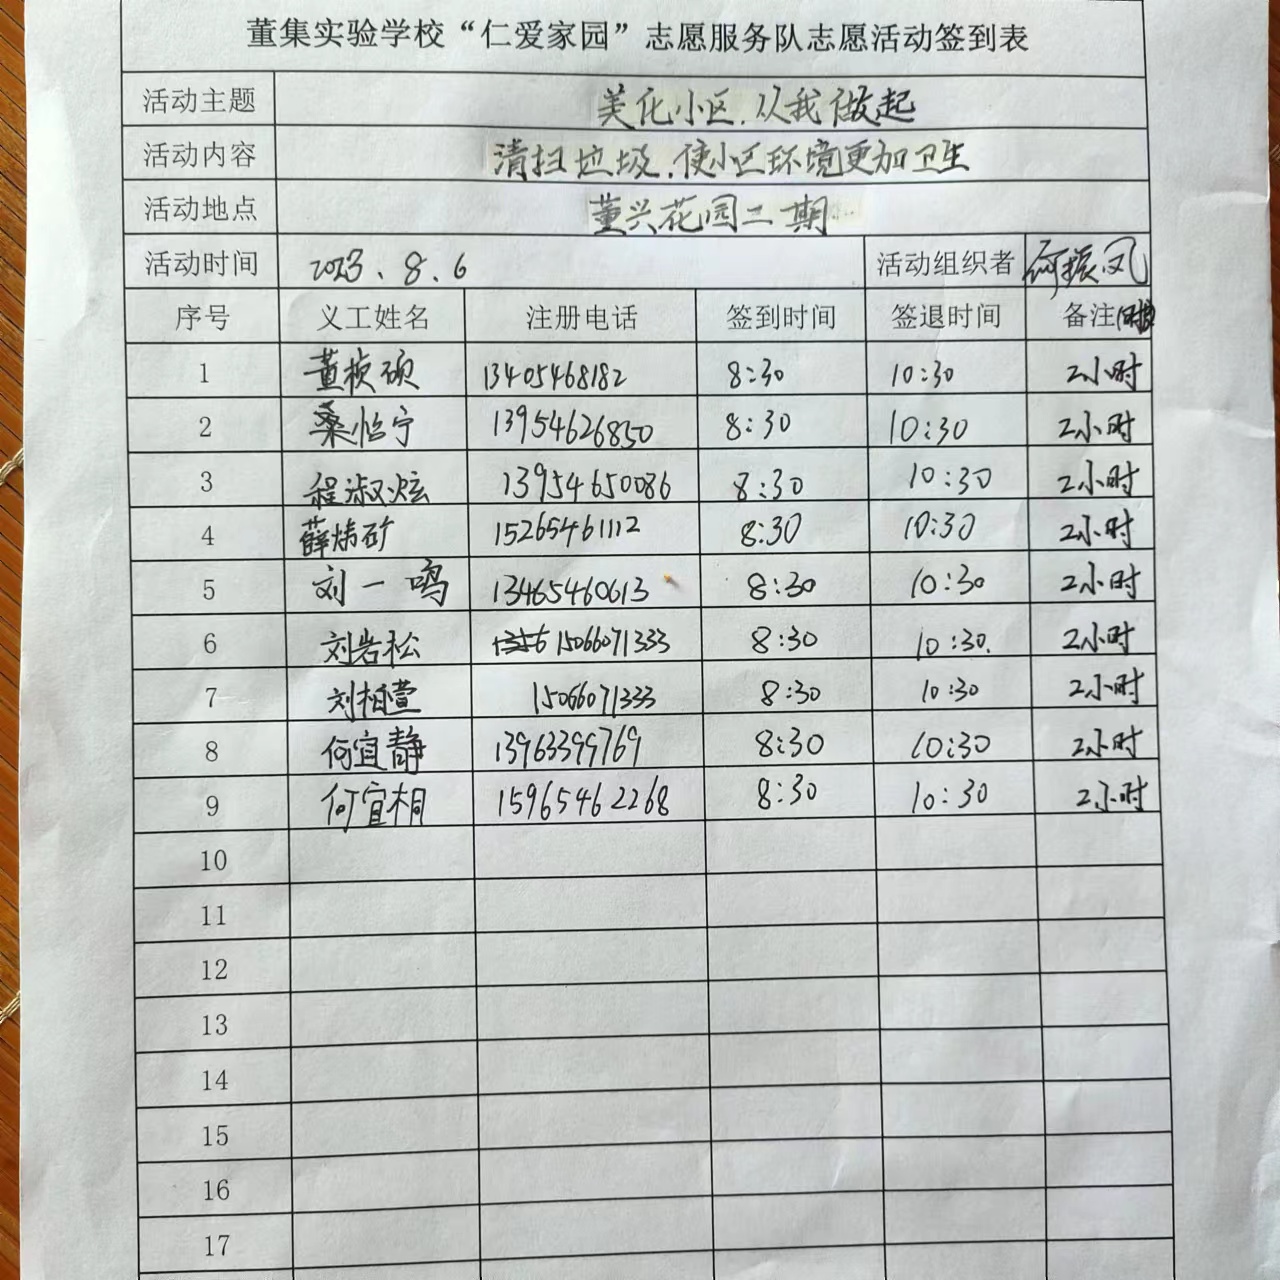 董集实验学校“仁爱家园”志愿服务队志愿活动签到表
活动主题 美化小区.从我做起
活动内容 清扫垃圾.使小区环境更加卫生
活动地点 董兴花园二期
活动时间 2023.8.6 活动组织者 何振凤
序号 义工姓名 注册电话 签到时间 签退时间 备注
1 董桢硕 13405468182 8:30 10:30 2小时
2 桑怡宁 13954626850 8:30 10:30 2小时
3 程淑炫 13954650086 8:30 10:30 2小时
4 薛炜矿 15265461112 8:30 10:30 2小时
5 刘一鸣 13465460613 8:30 10:30 2小时
6 刘岩松 15066071333 8:30 10:30. 2小时
7 刘柏萱 15066071333 8:30 10:30 2小时
8 何宜静 13963399769 8:30 10:30 2小时
9 何宜桐 15965462268 8:30 10:30 2小时
10
11
12
13
14
15
16
17